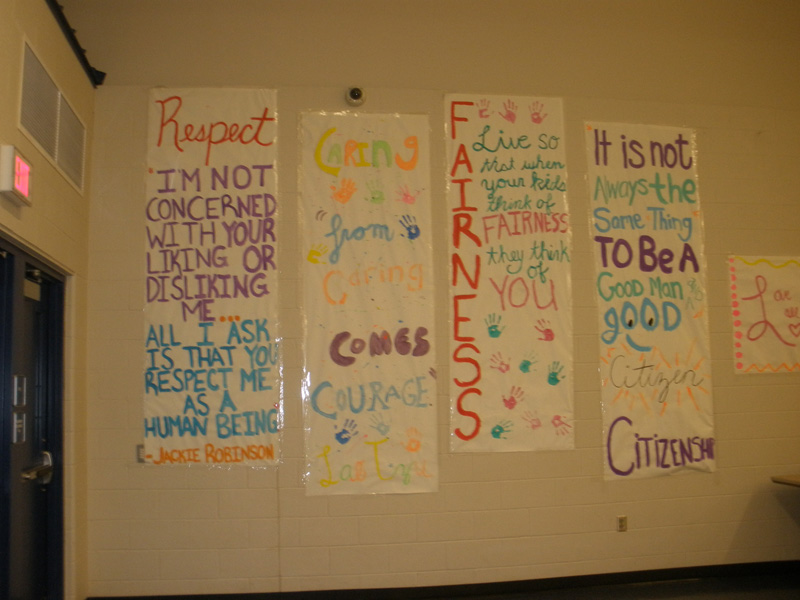 Respect
I'M NOT
CONCERNED
WITH YOUR
LIKING OR
DISLIKING
ME...
ALL I ASK
IS THAT YOU
RESPECT ME
AS A
HUMAN BEING
-JACKIE ROBINSON
CARING
"from
Caring
COMES
COURAGE"
Lao Tzu
FAIRNESS
Live so
that when
your kids
think of
FAIRNESS
they think
of
YOU
It is not
Always the
Same Thing
TO Be A
GOOD MAN &
gOOD
Citizen
CITIZENSHIP